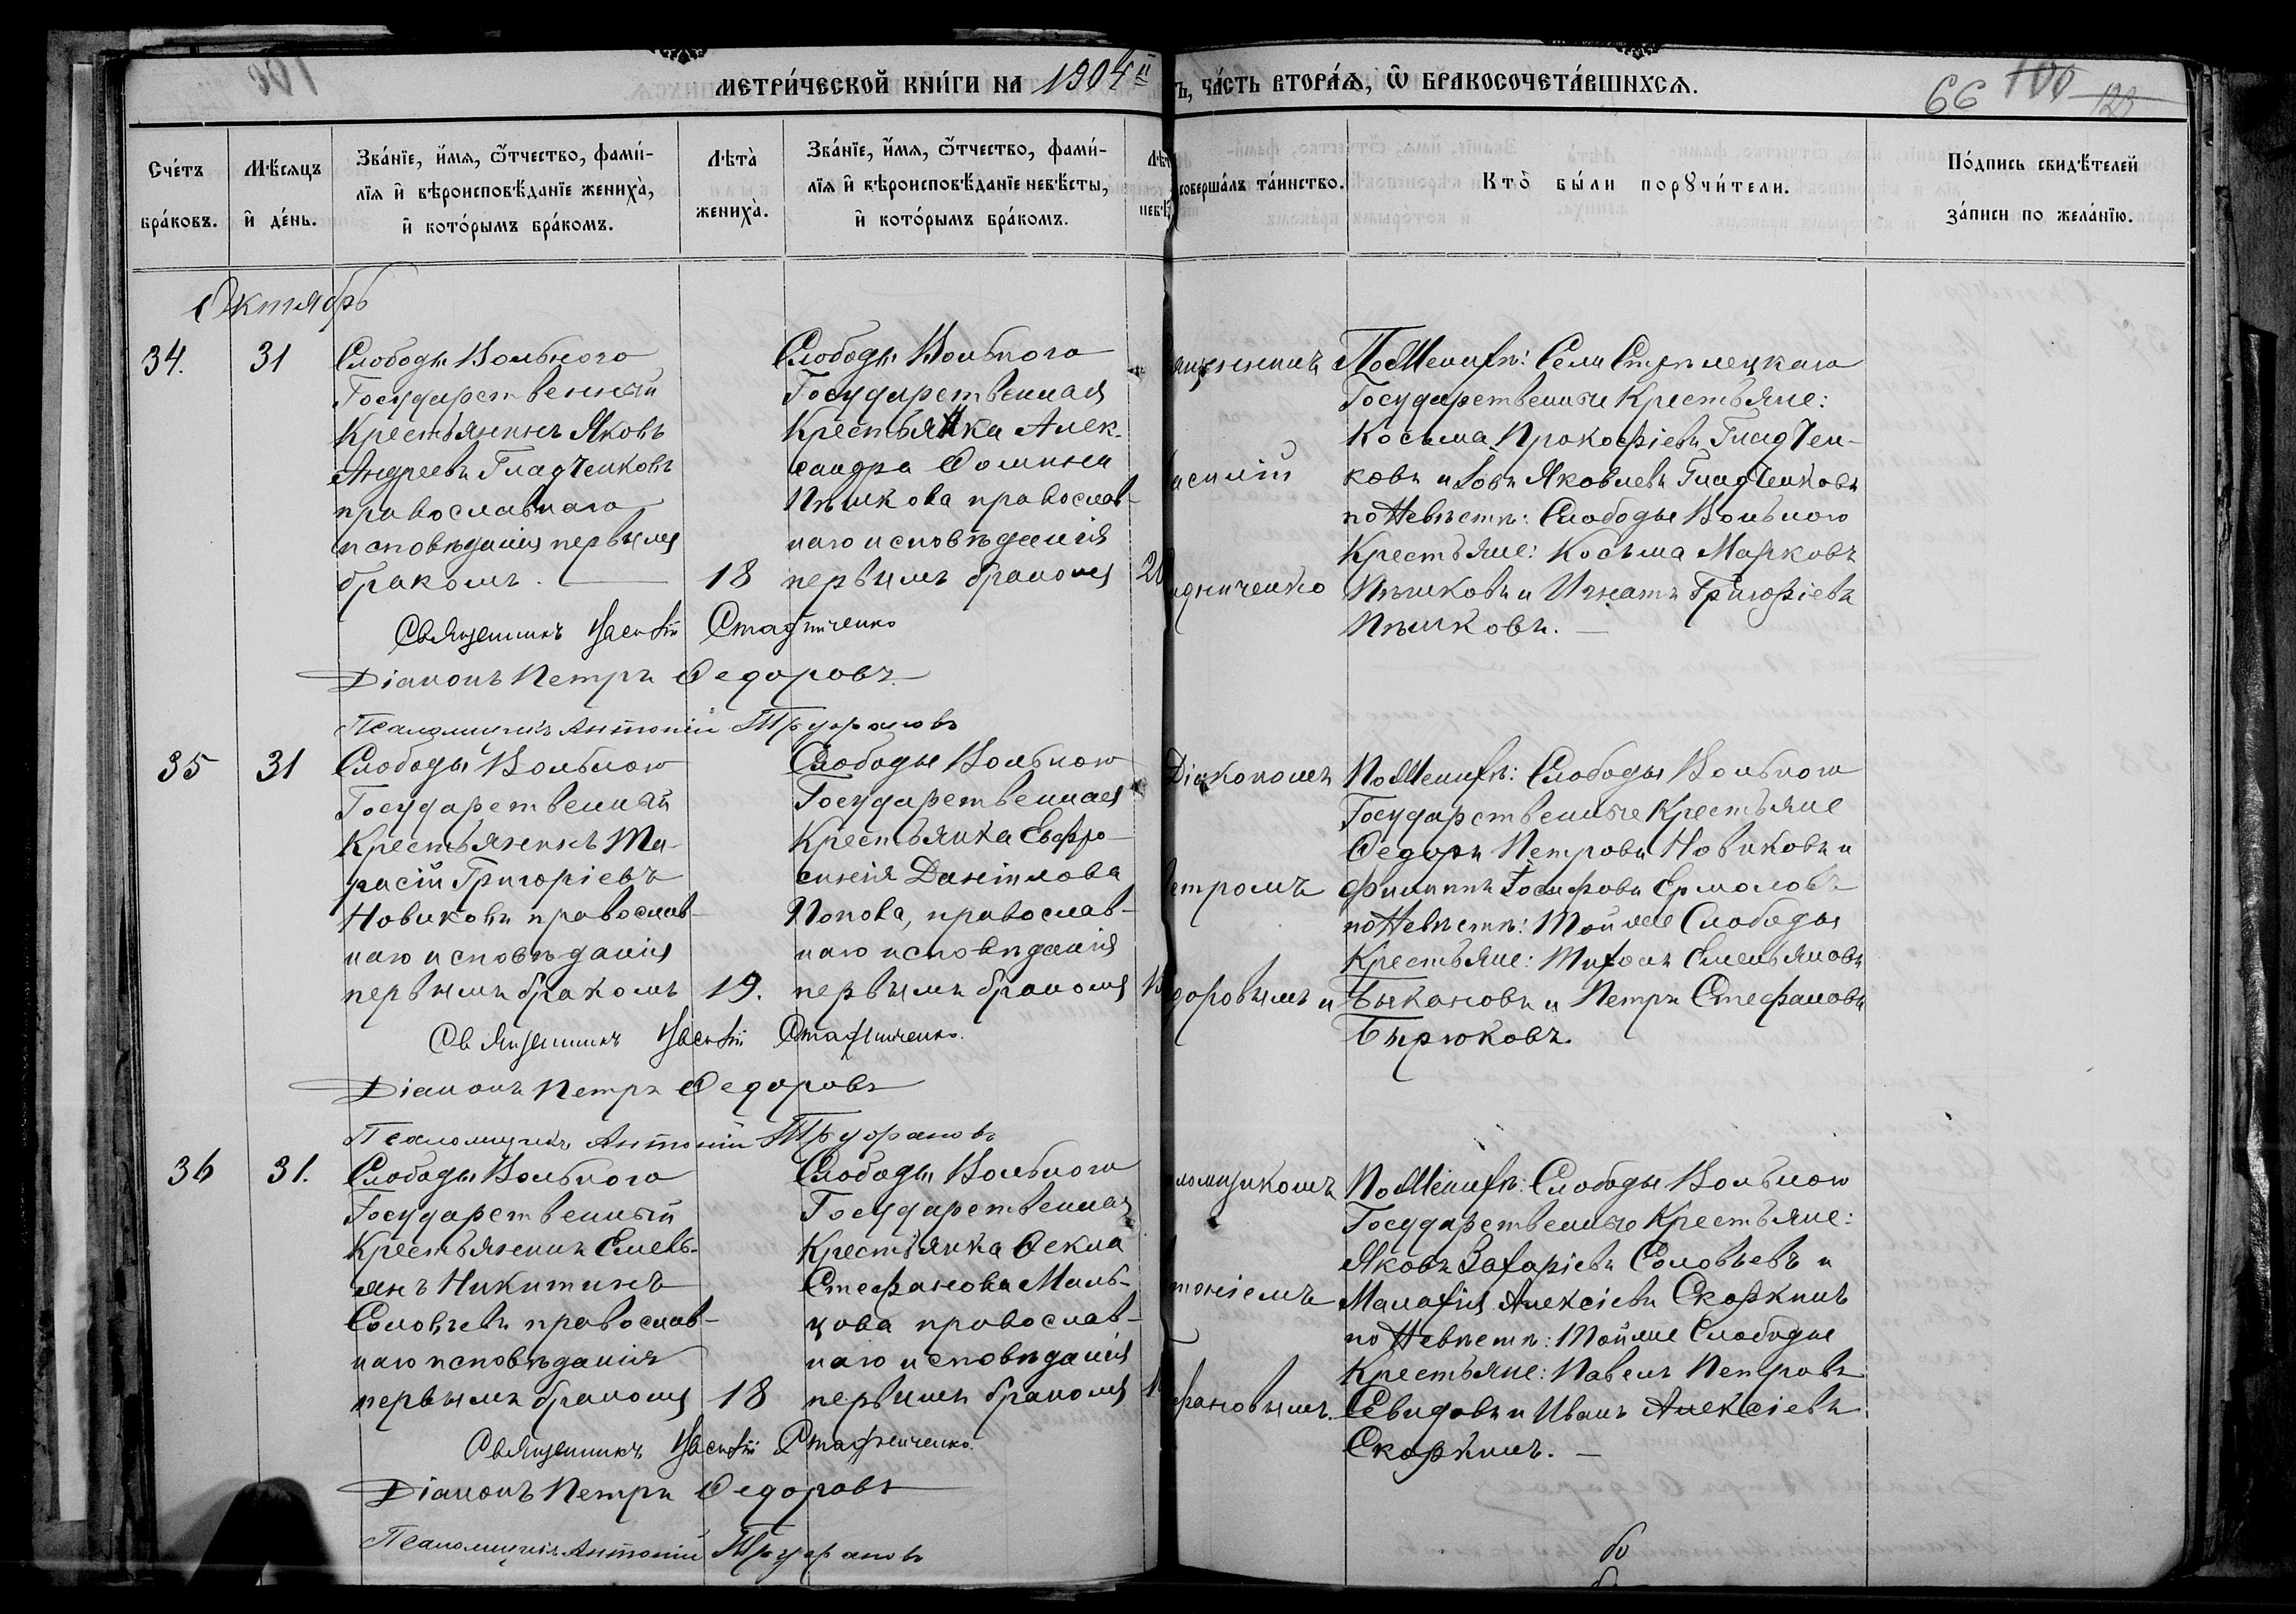 МЕТРИ́ЧЕСКОЙ КНИ́ГИ НА 1904й
Ъ, ЧА́СТЬ ВТОРА́Ѧ, Ѿ БРАКОСОЧЕТА́ВШИХСѦ.
66 100 123
Сче́тъ бра́ковъ.
Мѣ́сяцъ и де́нь.
Зва́нїе, и́мя, ѻ́тчество, фами́-
лїя и вѣроисповѣ́данїе жениха̀,
и кото́рымъ бра́комъ.
Лѣта̀ жениха̀.
Зва́нїе, и́мя, ѻ́тчество, фами́-
лїя и вѣроисповѣ́данїе невѣ́сты,
и кото́рымъ бра́комъ.
Лѣт
невѣ
соверша́лъ та́инство.
Кто̀ бы́ли порꙋчи́тели.
По́дпись свидѣ́телей
за́писи по жела́нїю.
Октябрь
34. 31
Слободы Вольного
Государственный
Крестьянинъ Яковъ
Андреевъ Гладченковъ
православнаго
исповѣданія первымъ
бракомъ. 18
Слободы Вольного
Государственная
Крестьянка Алек-
сандра Фомина
Пѣшкова православ-
наго исповѣданія
первымъ бракомъ 20
Священникъ Василій Стадниченко
Діаконъ Петръ Федоровъ
Псаломщикъ Антоній Труфановъ
асилій
дниченко
По Женихѣ: Села Стрѣлецкаго
Государственные Крестьяне:
Косьма Прокофіевъ Гладчен-
ковъ и Іовъ Яковлевъ Гладченковъ
по Невѣстѣ: Слободы Вольного
Крестьяне: Косьма Марковъ
Пѣшковъ и Игнатъ Григоріевъ
Пѣшковъ.
35 31
Слободы Вольного
Государственный
Крестьянинъ Та-
расій Григоріевъ
Новиковъ православ-
наго исповѣданія
первымъ бракомъ 19.
Слободы Вольного
Государственная
Крестьянка Евфро-
синія Даніилова
Попова, православ-
наго исповѣданія
первымъ бракомъ
Священникъ Василій Стадниченко.
Діаконъ Петръ Федоровъ
Псаломщикъ Антоній Труфановъ
Діакономъ
етромъ
доровымъ и
По Женихѣ: Слободы Вольного
Государственные Крестьяне
Федоръ Петровъ Новиковъ и
Филиппъ Іосифовъ Ермоловъ
по Невѣстѣ: Той же Слободы
Крестьяне: Тихонъ Емельяновъ
Быкановъ и Петръ Стефановъ
Бирюковъ.
36 31.
Слободы Вольного
Государственный
Крестьянинъ Емель-
янъ Никитинъ
Соловьевъ православ-
наго исповѣданія
первымъ бракомъ 18
Слободы Вольного
Государственная
Крестьянка Фекла
Стефанова Маль-
цова православ-
наго исповѣданія
первымъ бракомъ
Священникъ Василій Стадниченко.
Діаконъ Петръ Федоровъ
Псаломщикъ Антоній Труфановъ
ломщикомъ
тоніемъ
фановымъ.
По Женихѣ: Слободы Вольного
Государственные Крестьяне:
Яковъ Захаріевъ Соловьевъ и
Малахія Алексіевъ Скоркинъ
по Невѣстѣ: Той же Слободы
Крестьяне: Павелъ Петровъ
Севидовъ и Иванъ Алексіевъ
Скоркинъ.